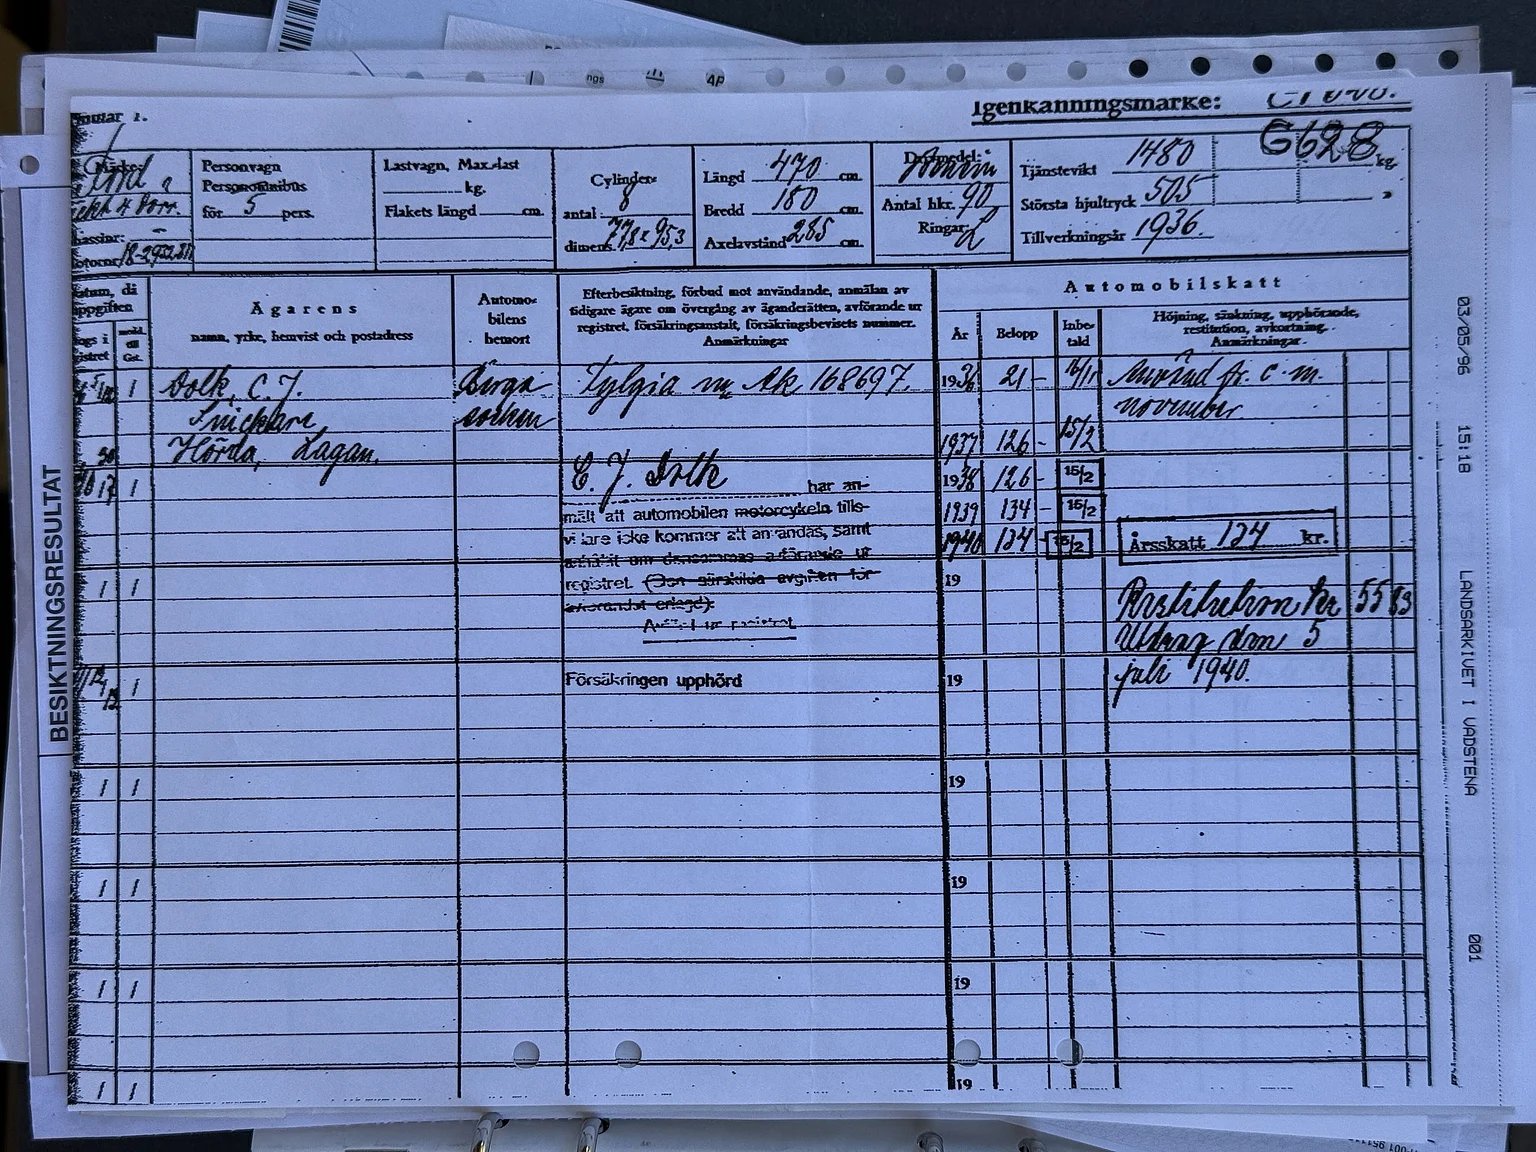 Igenkänningsmärke:
G628
Personvagn
Personomnibus
för 5 pers.
Lastvagn, Max.-last
kg.
Flakets längd cm.
Cylinder-
antal 8
dimens. 77,8 x 95,3
Längd 470 cm.
Bredd 180 cm.
Axelavstånd 285 cm.
Antal hkr. 90
Ringar: L
Tjänstevikt 1480 kg.
Största hjultryck 505 »
Tillverkningsår 1936.
Ford
18-2952811
Ägarens
namn, yrke, hemvist och postadress
Automo-
bilens
hemort
Efterbesiktning, förbud mot användande, anmälan av
tidigare ägare om övergång av äganderätten, avförande ur
registret, försäkringsanstalt, försäkringsbevisets nummer.
Anmärkningar
Automobilskatt
År
Belopp
Inbe-
tald
Höjning, sänkning, upphörande,
restitution, avkortning.
Anmärkningar.
Dolk, C. J.
Snickare
Hörda, Lagan.
Berga
socken
Fylgia nr Ak 168697.
1936 21 - 16/11
Använd fr. o. m.
november
1937 126 - 15/2
1938 126 - 15/2
1939 134 - 15/2
1940 134 - 15/2
C. J. Dolk har an-
mält att automobilen motorcykeln tills-
vidare icke kommer att användas, samt
anhållit om densammas avförande ur
registret. (Den särskilda avgiften för
avförandet erlegd).
Avförd ur registret.
Årsskatt 134 kr.
Restitution kr 55 83
Utdrag den 5
juli 1940.
Försäkringen upphörd
19
19
19
19
19
19
BESIKTNINGSRESULTAT
03/05/96 15:18 LANDSARKIVET I VADSTENA 001